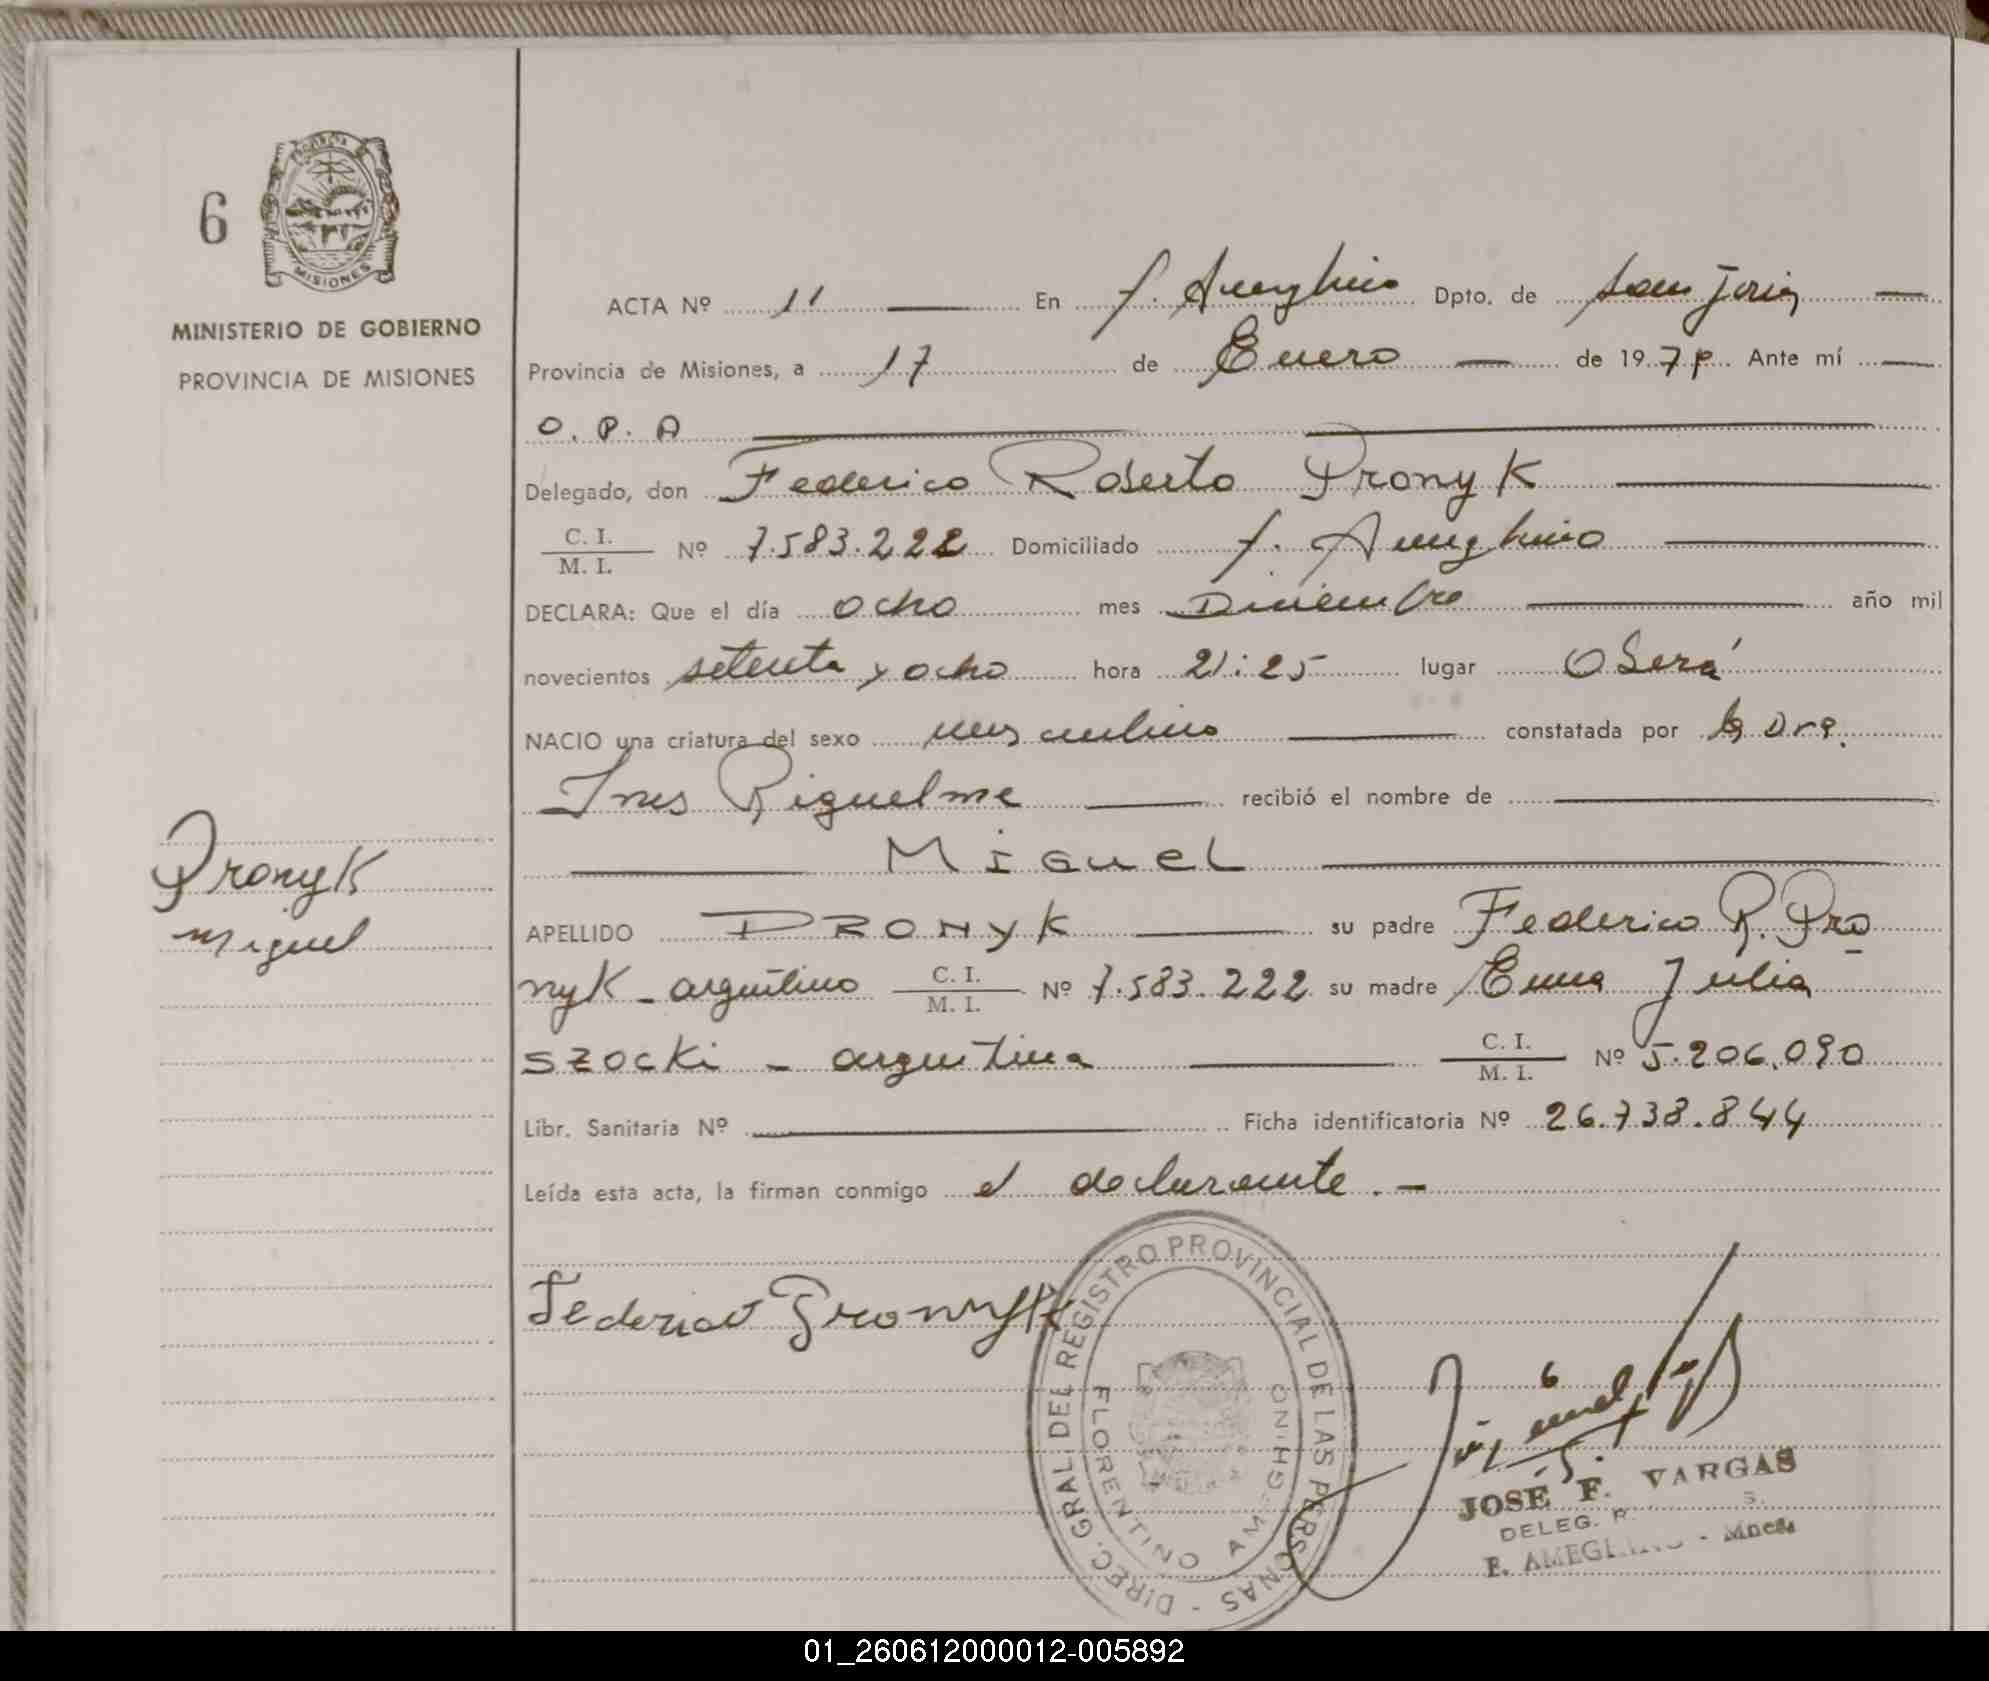 6
MISIONES
MINISTERIO DE GOBIERNO
PROVINCIA DE MISIONES
ACTA Nº 11 En F. Ameghino Dpto. de San Javier
Provincia de Misiones, a 17 de Enero de 197 Ante mí
O. P. A
Delegado, don Federico Roberto Pronyk
C. I.
M. I. Nº 7.583.222 Domiciliado F. Ameghino
DECLARA: Que el día ocho mes Diciembre año mil
novecientos setenta y ocho hora 21:25 lugar Oberá
NACIO una criatura del sexo masculino constatada por la Dra.
Ines Riquelme recibió el nombre de
Miguel
Pronyk
Miguel
APELLIDO PRONYK su padre Federico R. Pro
nyk - argentino C. I. M. I. Nº 7.583.222 su madre Emma Julia
SZOCKi - argentina C. I. M. I. Nº 5.206.090
Libr. Sanitaria Nº Ficha identificatoria Nº 26.738.844
Leída esta acta, la firman conmigo el declarante. -
Federico Pronyk
DIREC. GRAL. DEL REGISTRO PROVINCIAL DE LAS PERSONAS -
FLORENTINO AMEGHINO
JOSE F. VARGAS
DELEG. R. S.
F. AMEGHINO - Mnes
01_260612000012-005892